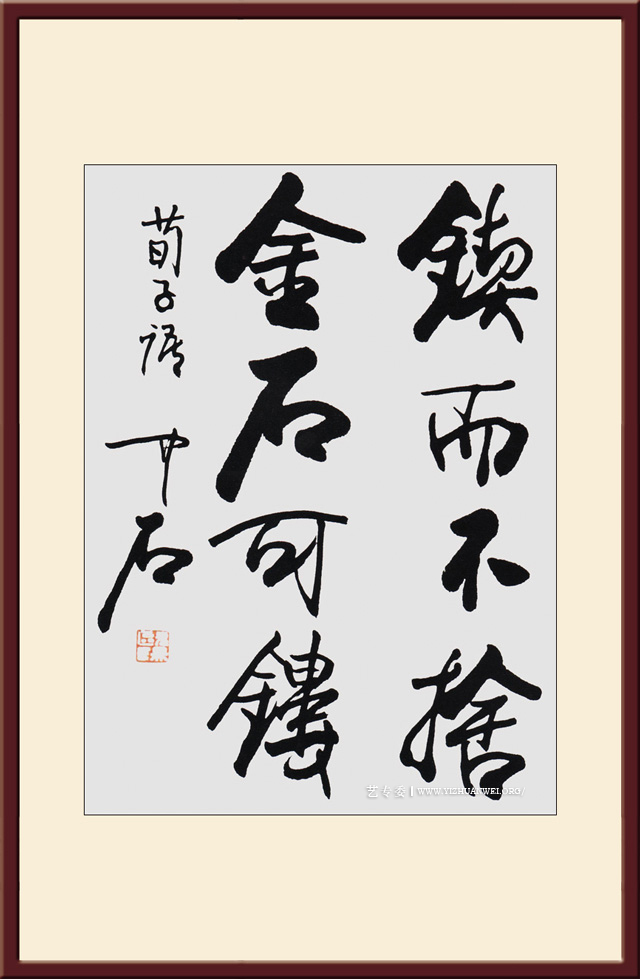 鍥而不捨
金石可鏤
荀子語
中石
艺专委 | WWW.YIZHUANWEI.ORG/